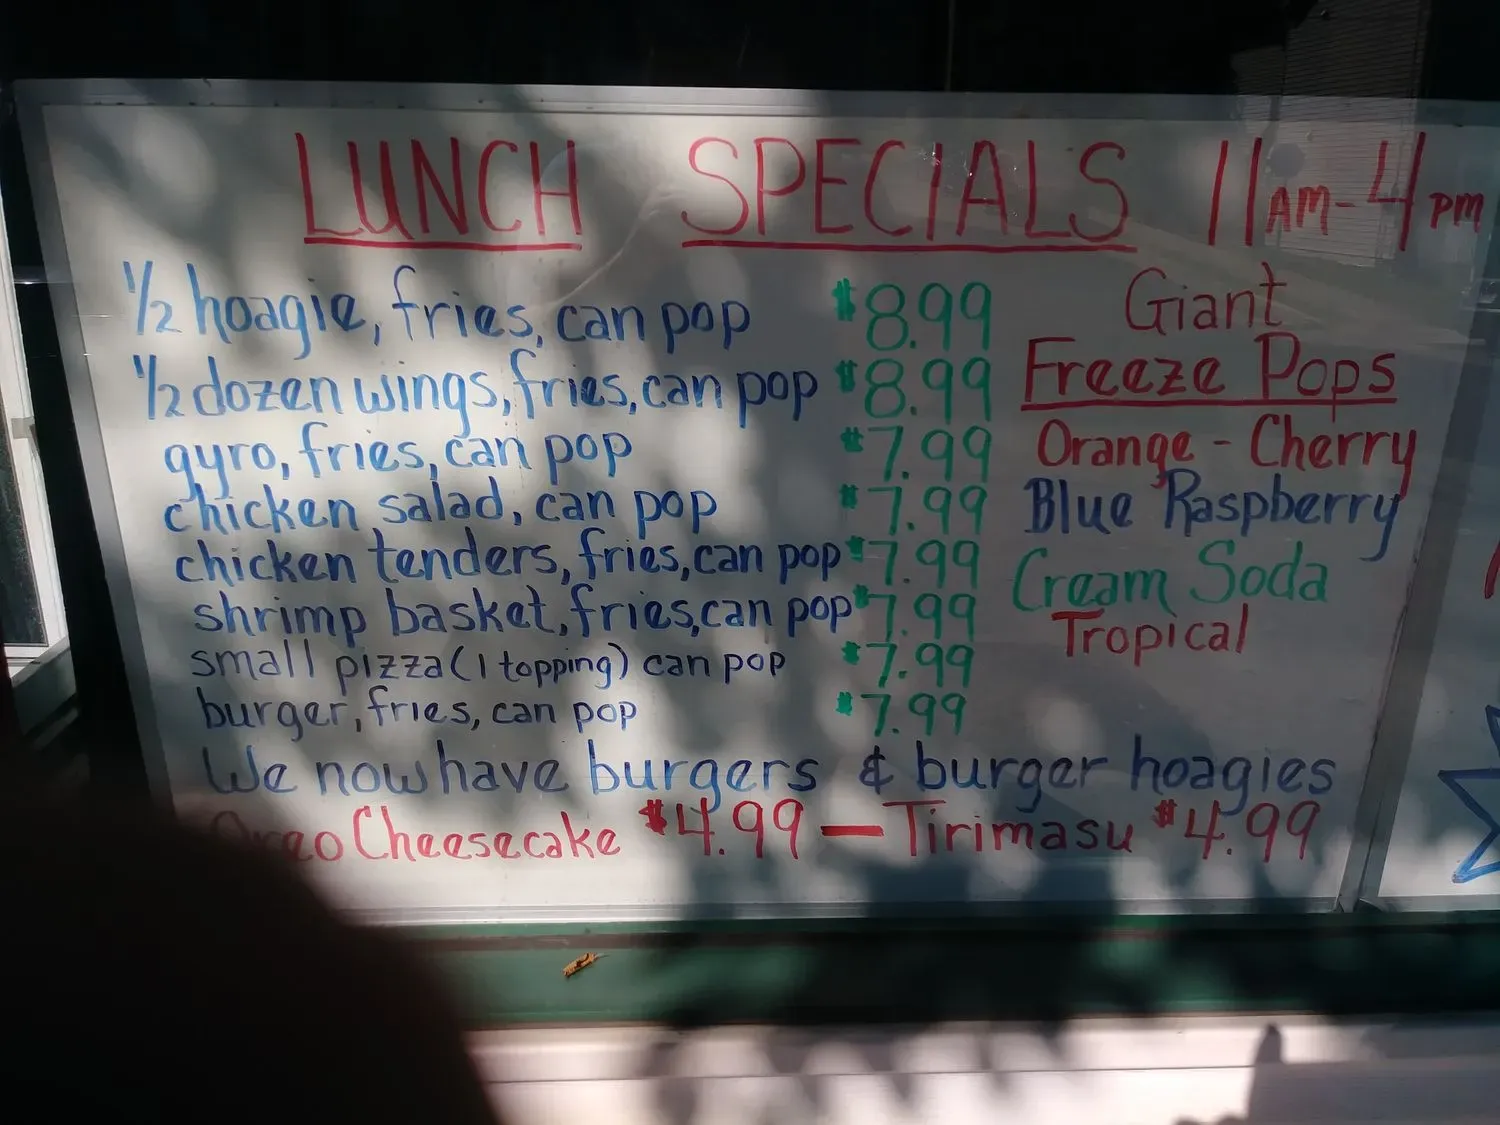 LUNCH SPECIALS 11AM-4PM
1/2 hoagie, fries, can pop $8.99
1/2 dozen wings, fries, can pop $8.99
gyro, fries, can pop $7.99
chicken salad, can pop $7.99
chicken tenders, fries, can pop $7.99
shrimp basket, fries, can pop $7.99
small pizza (1 topping) can pop $7.99
burger, fries, can pop $7.99
Giant
Freeze Pops
Orange - Cherry
Blue Raspberry
Cream Soda
Tropical
We now have burgers & burger hoagies
Oreo Cheesecake $4.99 — Tirimasu $4.99